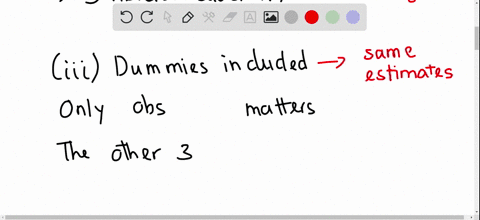 (iii) Dummies included → same estimates
Only obs matters
The other 3